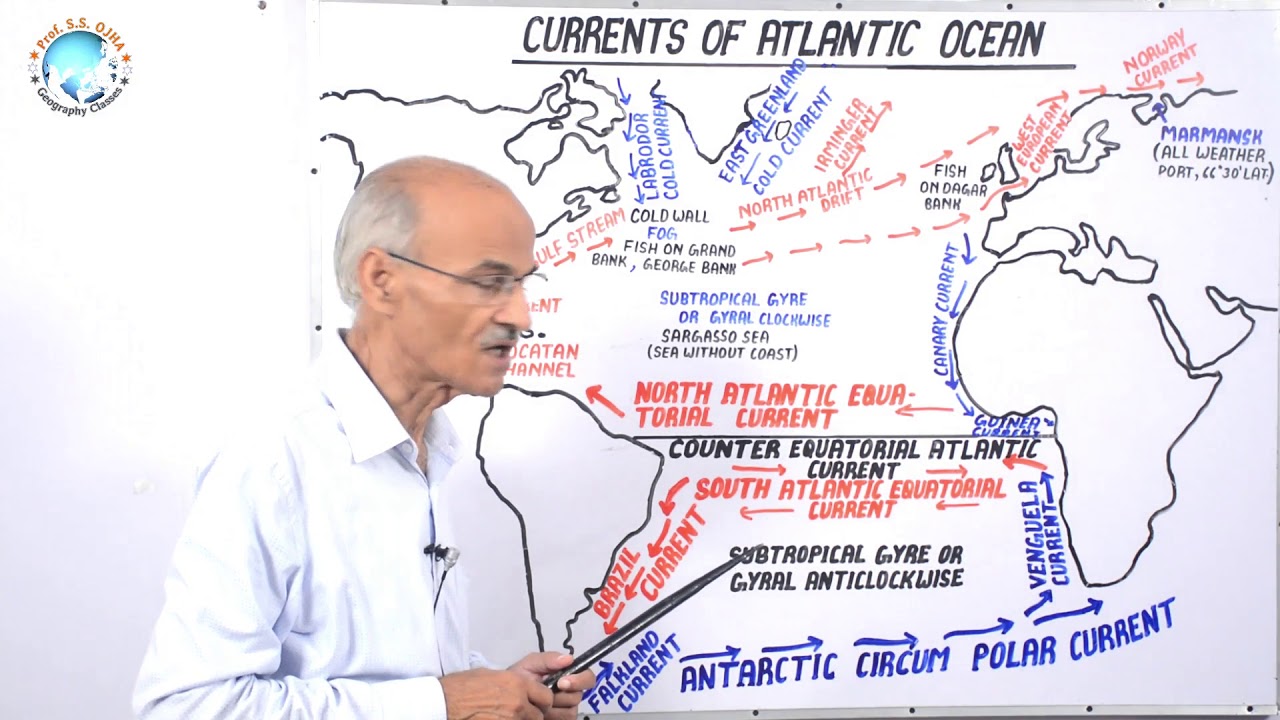 Prof. S.S. OJHA
Geography Classes
CURRENTS OF ATLANTIC OCEAN
NORWAY
CURRENT
LABRODOR
COLD CURRENT
EAST GREENLAND
COLD CURRENT
IRMINGER
CURRENT
WEST
EUROPEAN
CURRENT
MARMANSK
(ALL WEATHER
PORT, 66°30' LAT.)
FISH
ON DAGAR
BANK
NORTH ATLANTIC
DRIFT
STREAM
COLD WALL
FOG
FISH ON GRAND
BANK, GEORGE BANK
SUBTROPICAL GYRE
OR GYRAL CLOCKWISE
SARGASSO SEA
(SEA WITHOUT COAST)
CANARY CURRENT
NORTH ATLANTIC EQUA-
TORIAL CURRENT
GUINEA
CURRENT
COUNTER EQUATORIAL ATLANTIC
CURRENT
SOUTH ATLANTIC EQUATORIAL
CURRENT
BRAZIL
CURRENT
SUBTROPICAL GYRE OR
GYRAL ANTICLOCKWISE
VENGUELA
CURRENT
FALKLAND
CURRENT
ANTARCTIC CIRCUM POLAR CURRENT